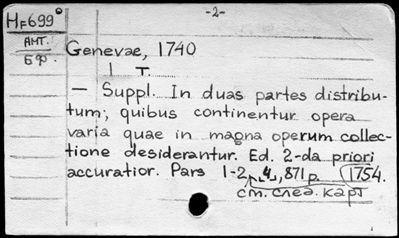 HF699
-2-
АНТ.
БФ.
Genevae, 1740
1 т.
— Suppl. In duas partes distribu-
tum, quibus continentur opera
varia quae in magna operum collec-
tione desiderantur. Ed. 2-da priori
accuratior. Pars 1-2, 4, 871 p. 1754.
см. след. карт